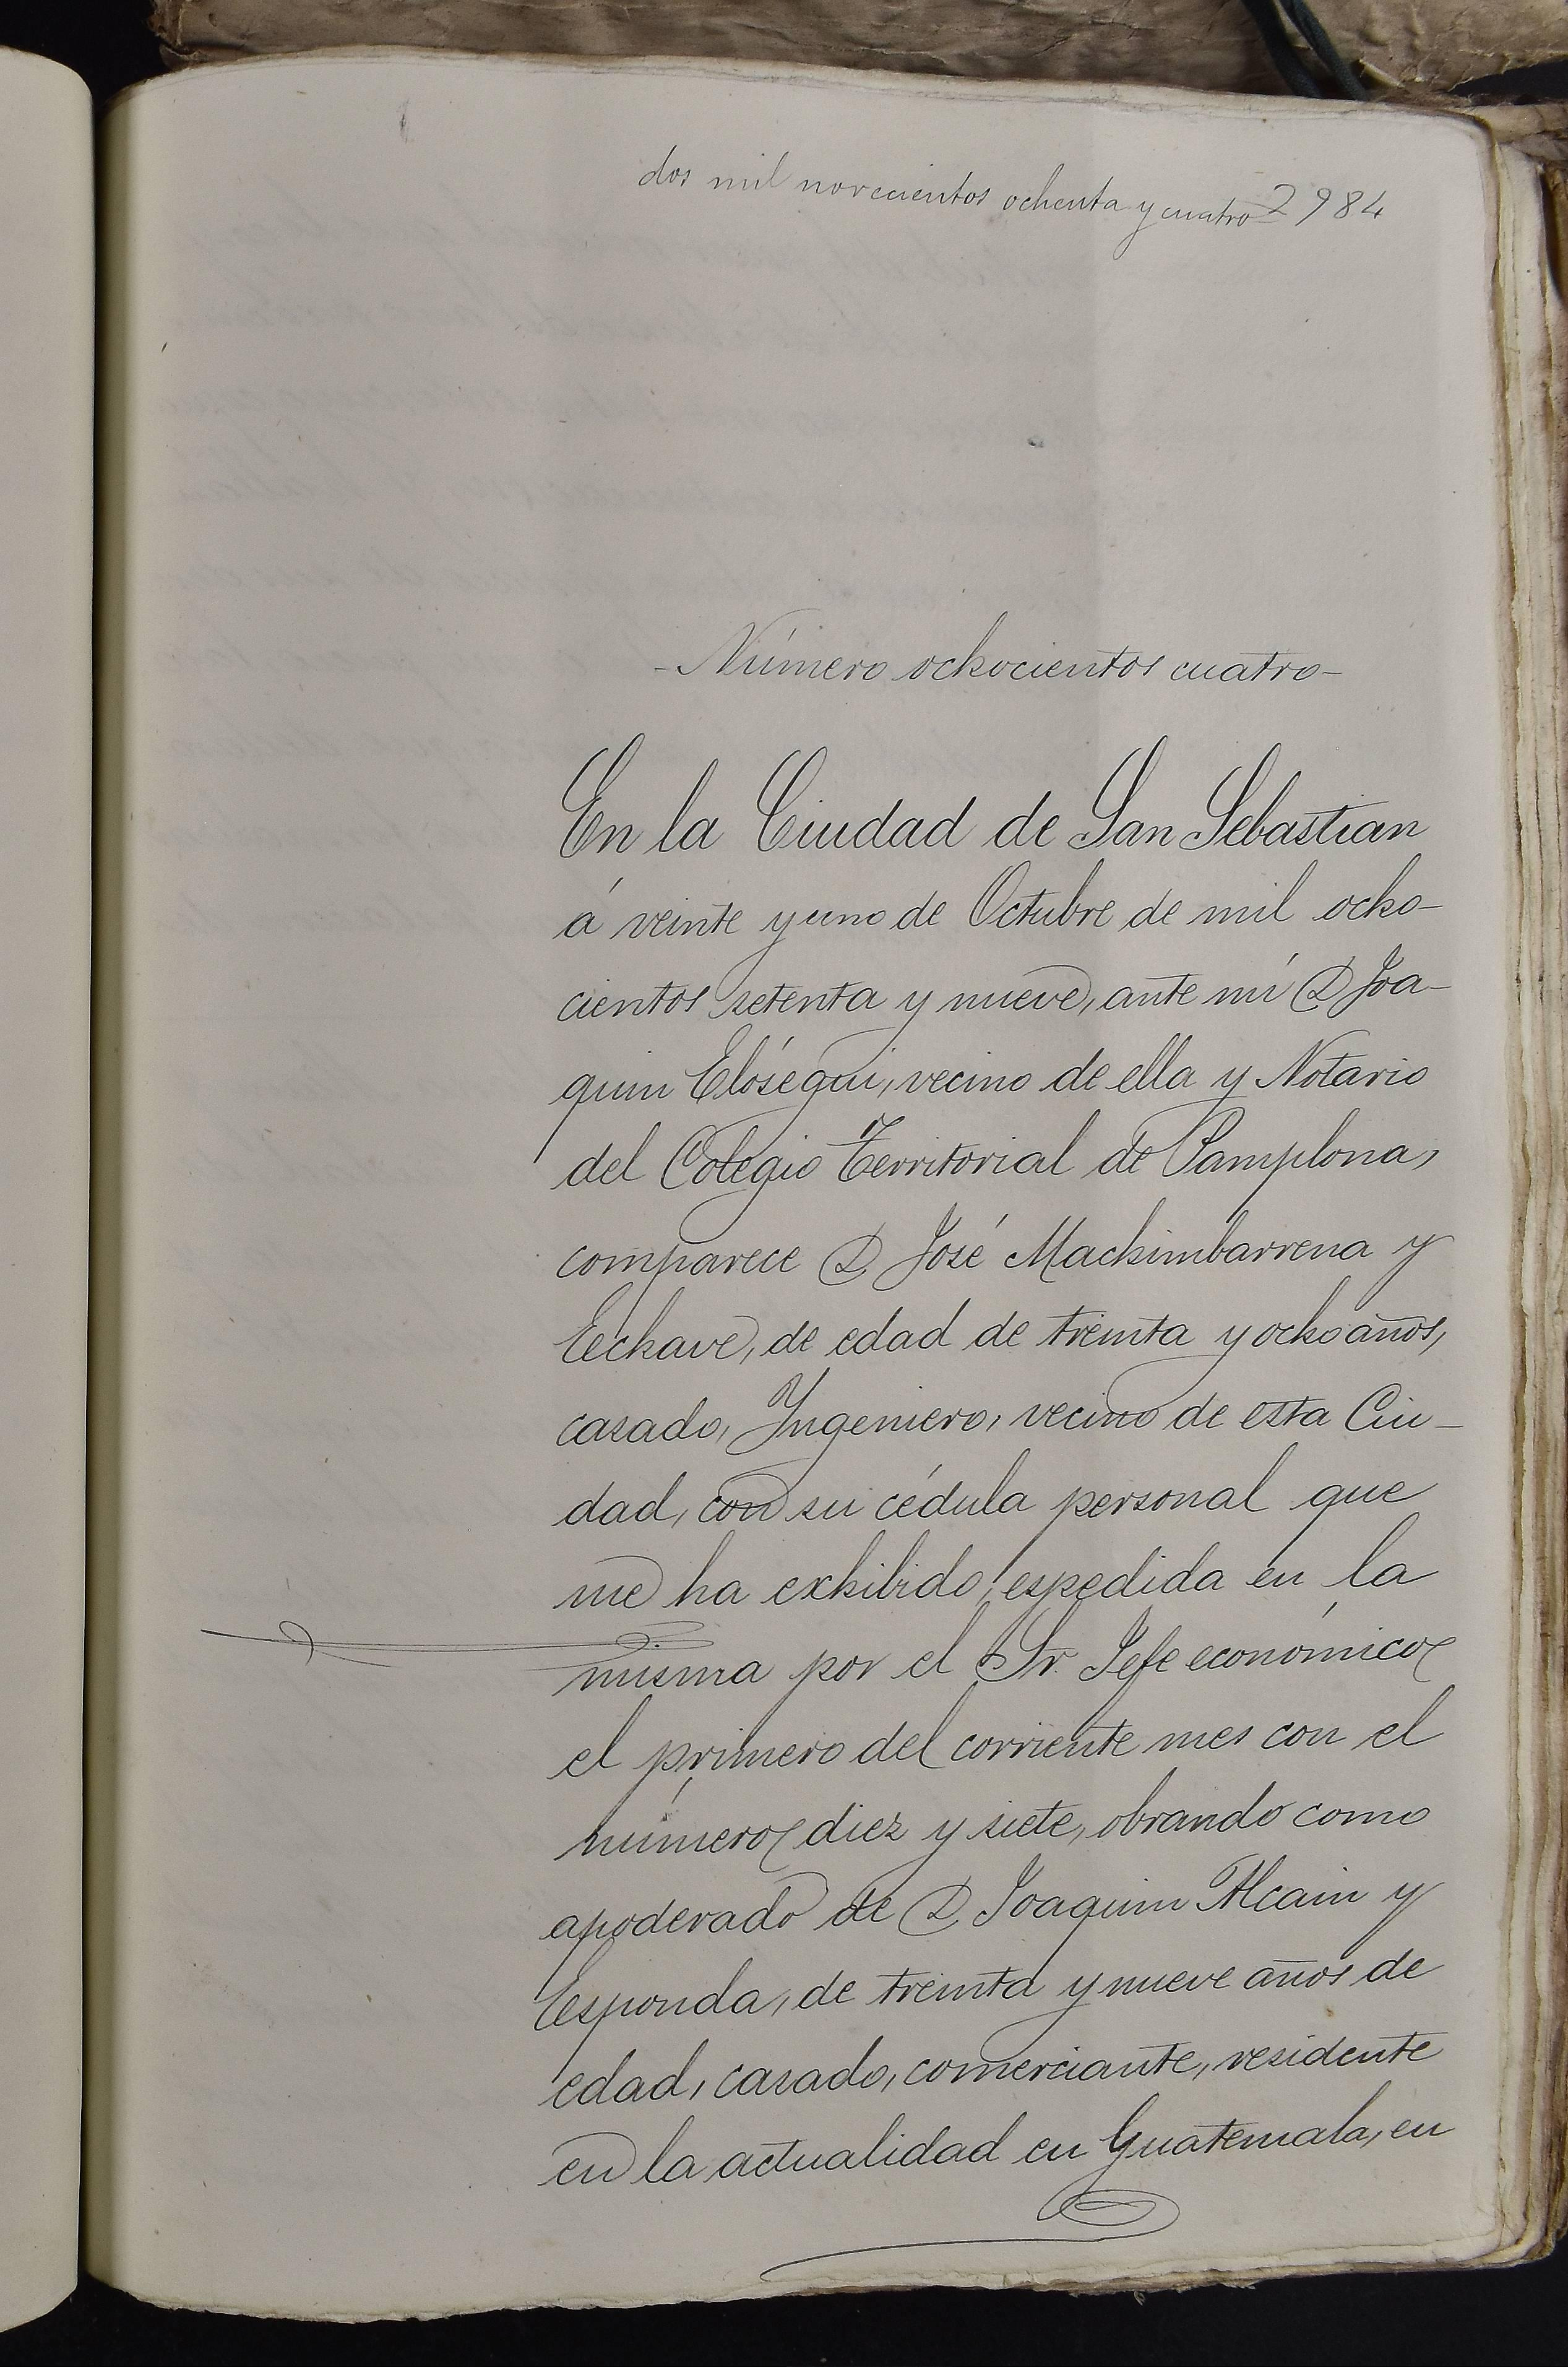 dos mil novecientos ochenta y cuatro 2984
-Número ochocientos cuatro-
En la Ciudad de San Sebastian
á veinte y uno de Octubre de mil ocho-
cientos setenta y nueve, ante mí D Joa-
quin Elósegui, vecino de ella y Notario
del Colegio Territorial de Pamplona,
comparece D José Machimbarrena y
Echave, de edad de treinta y ocho años,
casado, Ingeniero, vecino de esta Ciu-
dad, con su cédula personal que
me ha exhibido, espedida en la
misma por el Sr. Jefe económico
el primero del corriente mes con el
número diez y siete, obrando como
apoderado de D Joaquin Alcain y
Esponda, de treinta y nueve años de
edad, casado, comerciante, residente
en la actualidad en Guatemala, en